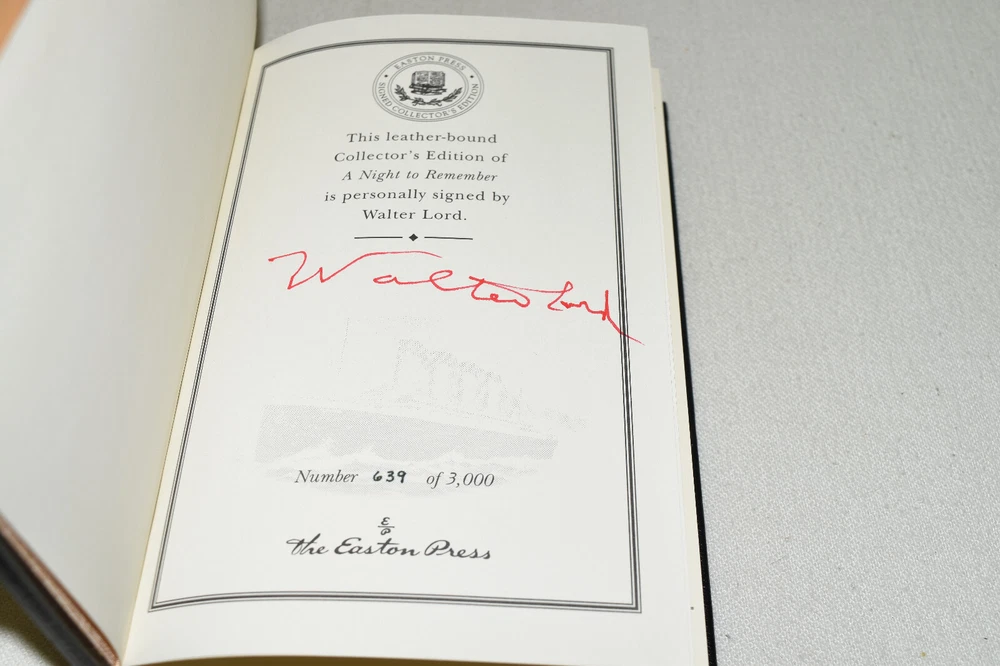 EASTON PRESS
SIGNED COLLECTOR'S EDITION
This leather-bound
Collector's Edition of
A Night to Remember
is personally signed by
Walter Lord.
Walter Lord
Number 639 of 3,000
E
P
the Easton Press